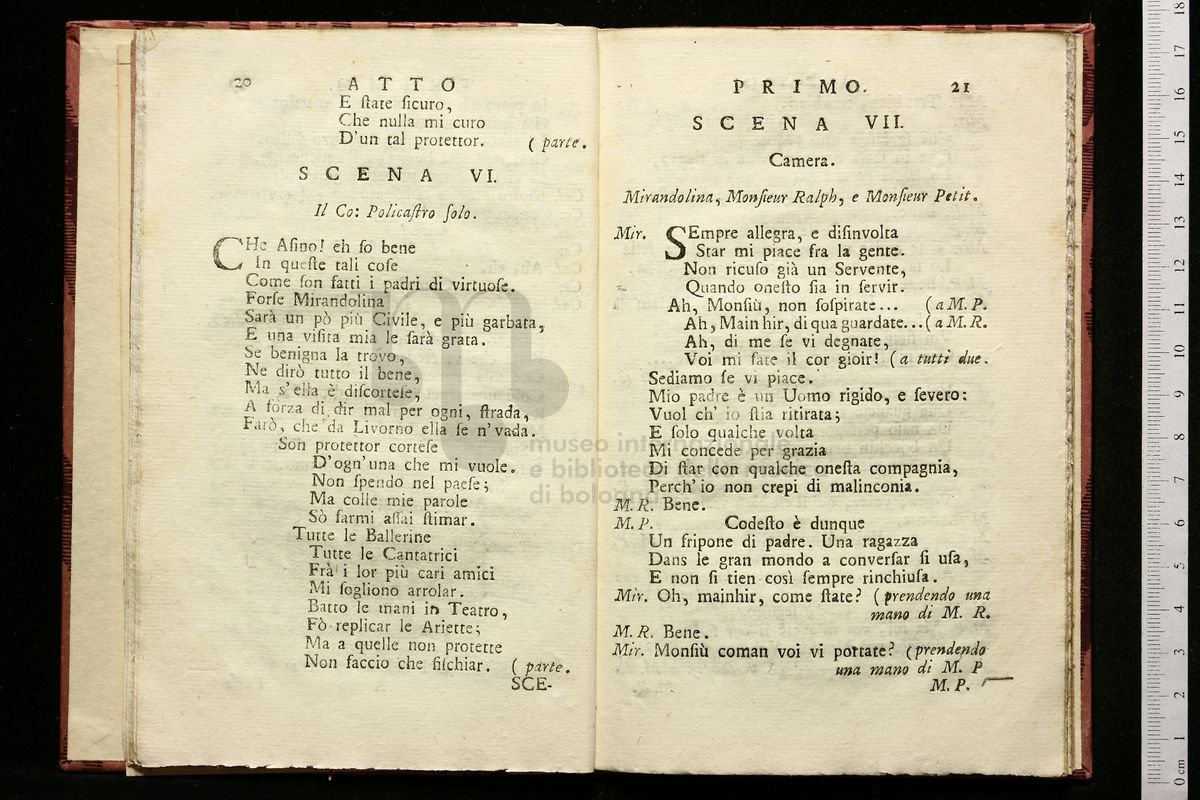 20 ATTO
E ſtate ſicuro,
Che nulla mi curo
D'un tal protettor. (parte.
SCENA VI.
Il Co: Policaſtro ſolo.
CHe Aſino! eh ſo bene
In queſte tali coſe
Come ſon fatti i padri di virtuoſe.
Forſe Mirandolina
Sarà un pò più Civile, e più garbata,
E una viſita mia le ſarà grata.
Se benigna la trovo,
Ne dirò tutto il bene,
Ma s'ella è diſcorteſe,
A forza di dir mal per ogni, ſtrada,
Farò, che da Livorno ella ſe n'vada.
Son protettor corteſe
D'ogn'una che mi vuole.
Non ſpendo nel paeſe;
Ma colle mie parole
Sò farmi aſſai ſtimar.
Tutte le Ballerine
Tutte le Cantatrici
Frà i lor più cari amici
Mi ſogliono arrolar.
Batto le mani in Teatro,
Fò replicar le Ariette;
Ma a quelle non protette
Non faccio che fiſchiar. (parte.
SCE-
PRIMO. 21
SCENA VII.
Camera.
Mirandolina, Monſieur Ralph, e Monſieur Petit.
Mir. SEmpre allegra, e diſinvolta
Star mi piace fra la gente.
Non ricuſo già un Servente,
Quando oneſto ſia in ſervir.
Ah, Monſiù, non ſoſpirate... (a M. P.
Ah, Main hir, di qua guardate...(a M. R.
Ah, di me ſe vi degnate,
Voi mi fate il cor gioir! (a tutti due.
Sediamo ſe vi piace.
Mio padre è un Uomo rigido, e ſevero:
Vuol ch' io ſtia ritirata;
E ſolo qualche volta
Mi concede per grazia
Di ſtar con qualche oneſta compagnia,
Perch' io non crepi di malinconia.
M. R. Bene.
M. P. Codeſto è dunque
Un fripone di padre. Una ragazza
Dans le gran mondo a converſar ſi uſa,
E non ſi tien così ſempre rinchiuſa.
Mir. Oh, mainhir, come ſtate? (prendendo una
mano di M. R.
M. R. Bene.
Mir. Monſiù coman voi vi portate? (prendendo
una mano di M. P
M. P.
museo internazionale
e biblioteca
di bologna
0 cm 1 2 3 4 5 6 7 8 9 10 11 12 13 14 15 16 17 18